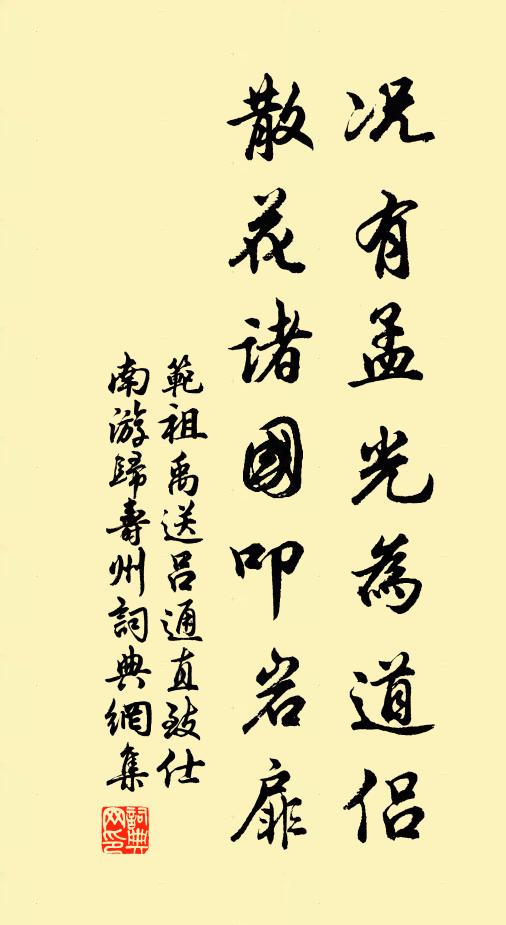 况有孟光為道侶
散花諸國叩岩扉
範祖禹送呂通直致仕
南游歸壽州詞典網集
詞典
网印